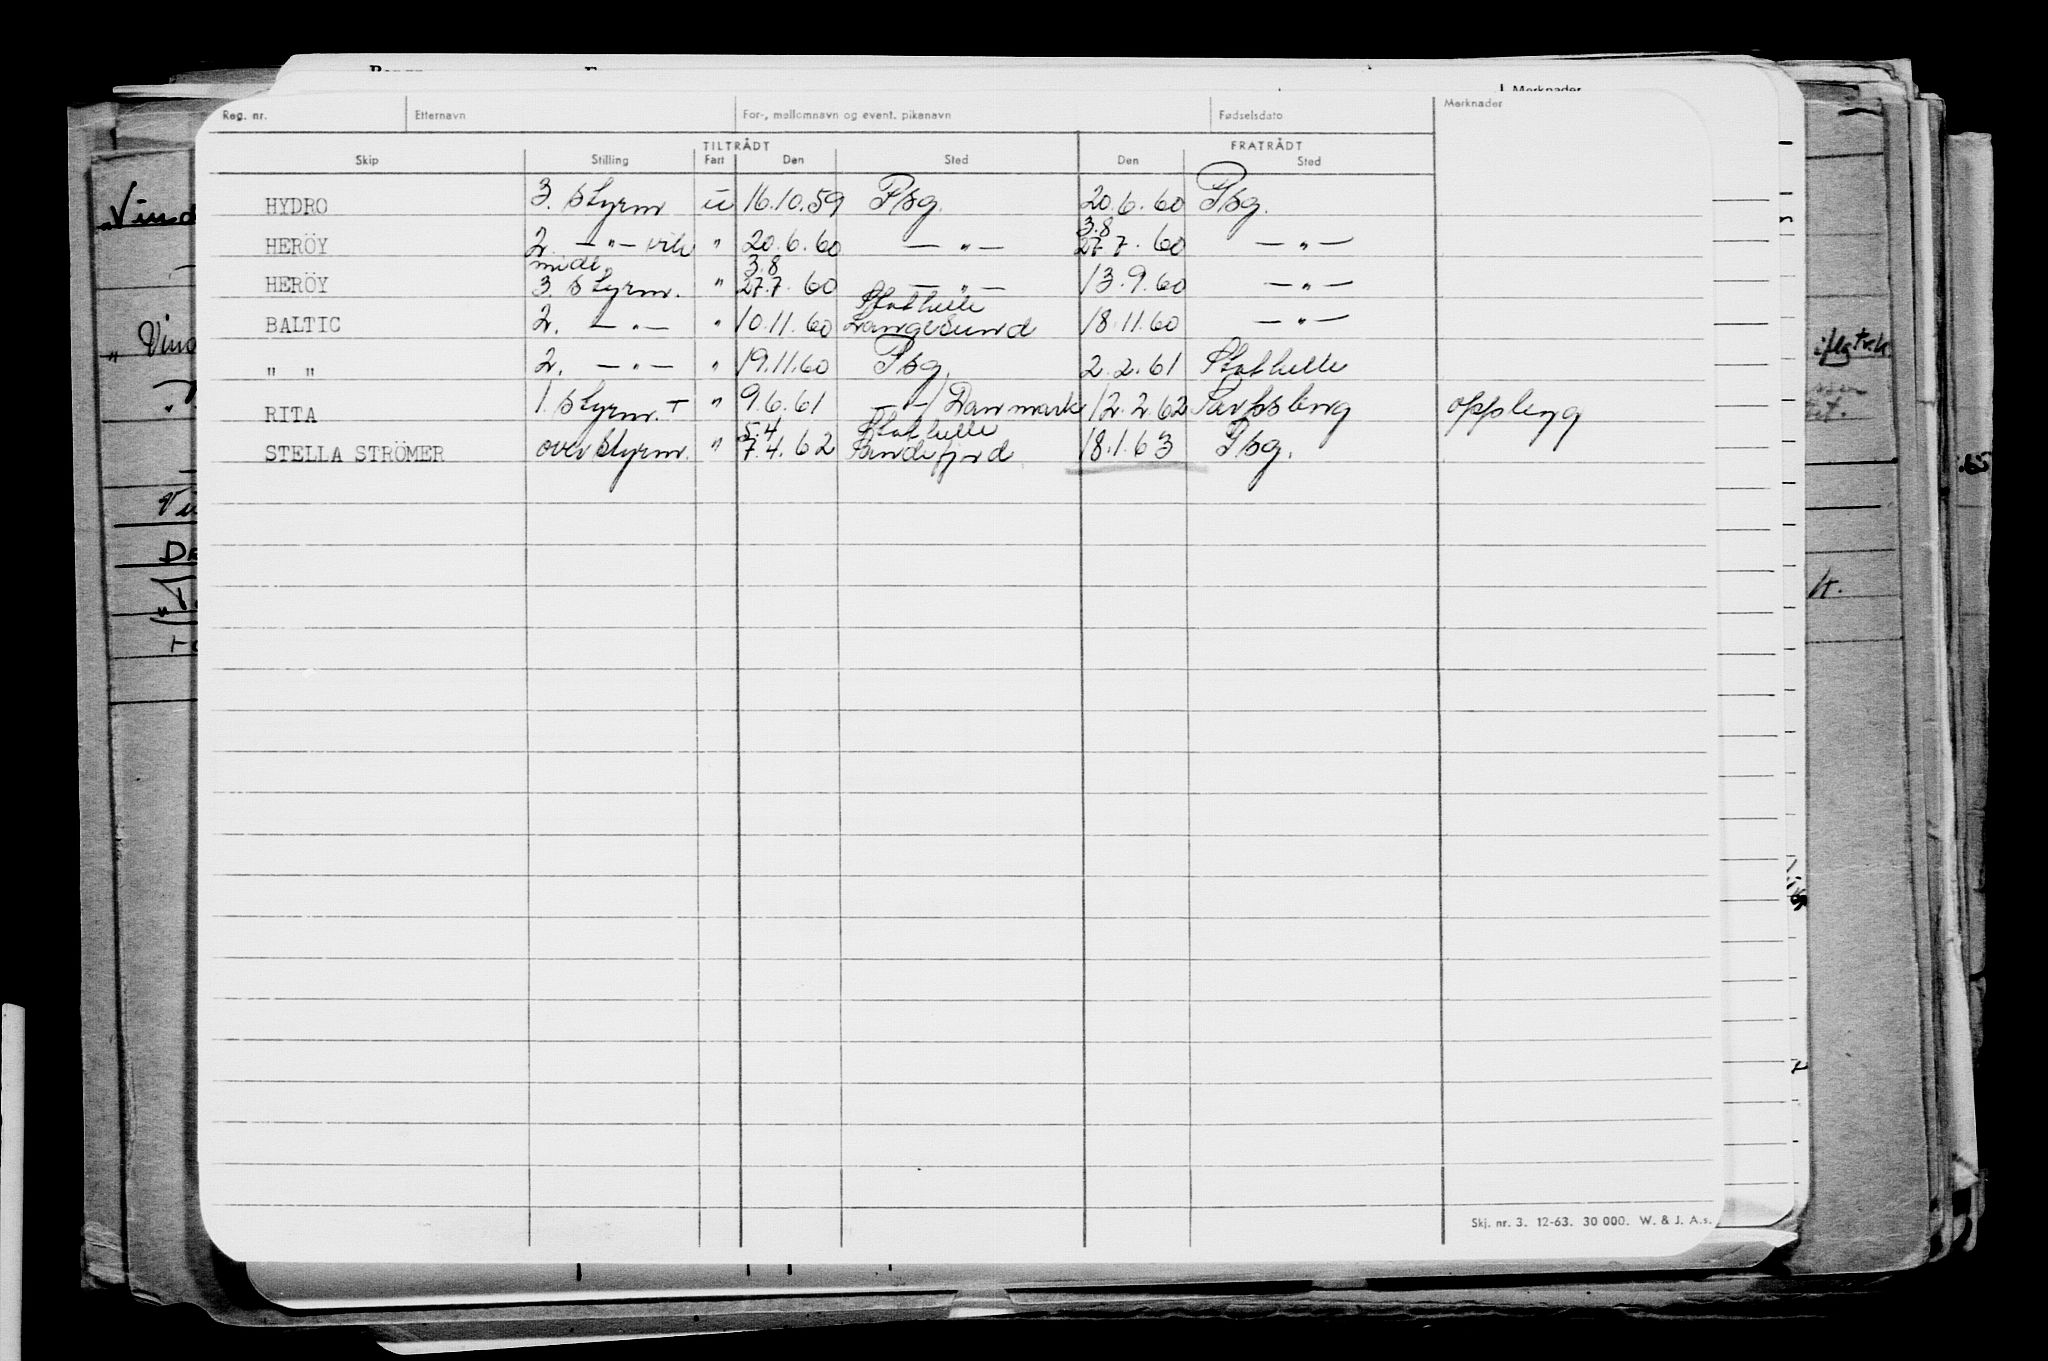 Merknader
Reg. nr. Etternavn For-, mellomnavn og event. pikenavn Fødselsdato Merknader
TILTRÅDT FRATRÅDT
Skip Stilling Fart Den Sted Den Sted
HYDRO 3. Styrm u 16.10.59 Psg. 20.6.60 Psg.
3.8
HERÖY 2. —"— vik " 20.6.60 —"— 27.7.60 —"—
midl. 3.8
HERÖY 3. Styrm. " 27.7.60 —"— 13.9.60 —"—
Stathelle
BALTIC 2. —"— " 10.11.60 Langesund 18.11.60 —"—
" " 2. —"— " 19.11.60 Psg. 2.2.61 Stathelle
RITA 1. Styrm. + " 9.6.61 —"—/Danmark 12.2.62 Sarpsborg opplegg
5.4 Stathelle
STELLA STRÖMER overstyrm. " 7.4.62 Sandefjord 18.1.63 Psg.
Skj. nr. 3. 12-63. 30 000. W. & J. A.s.